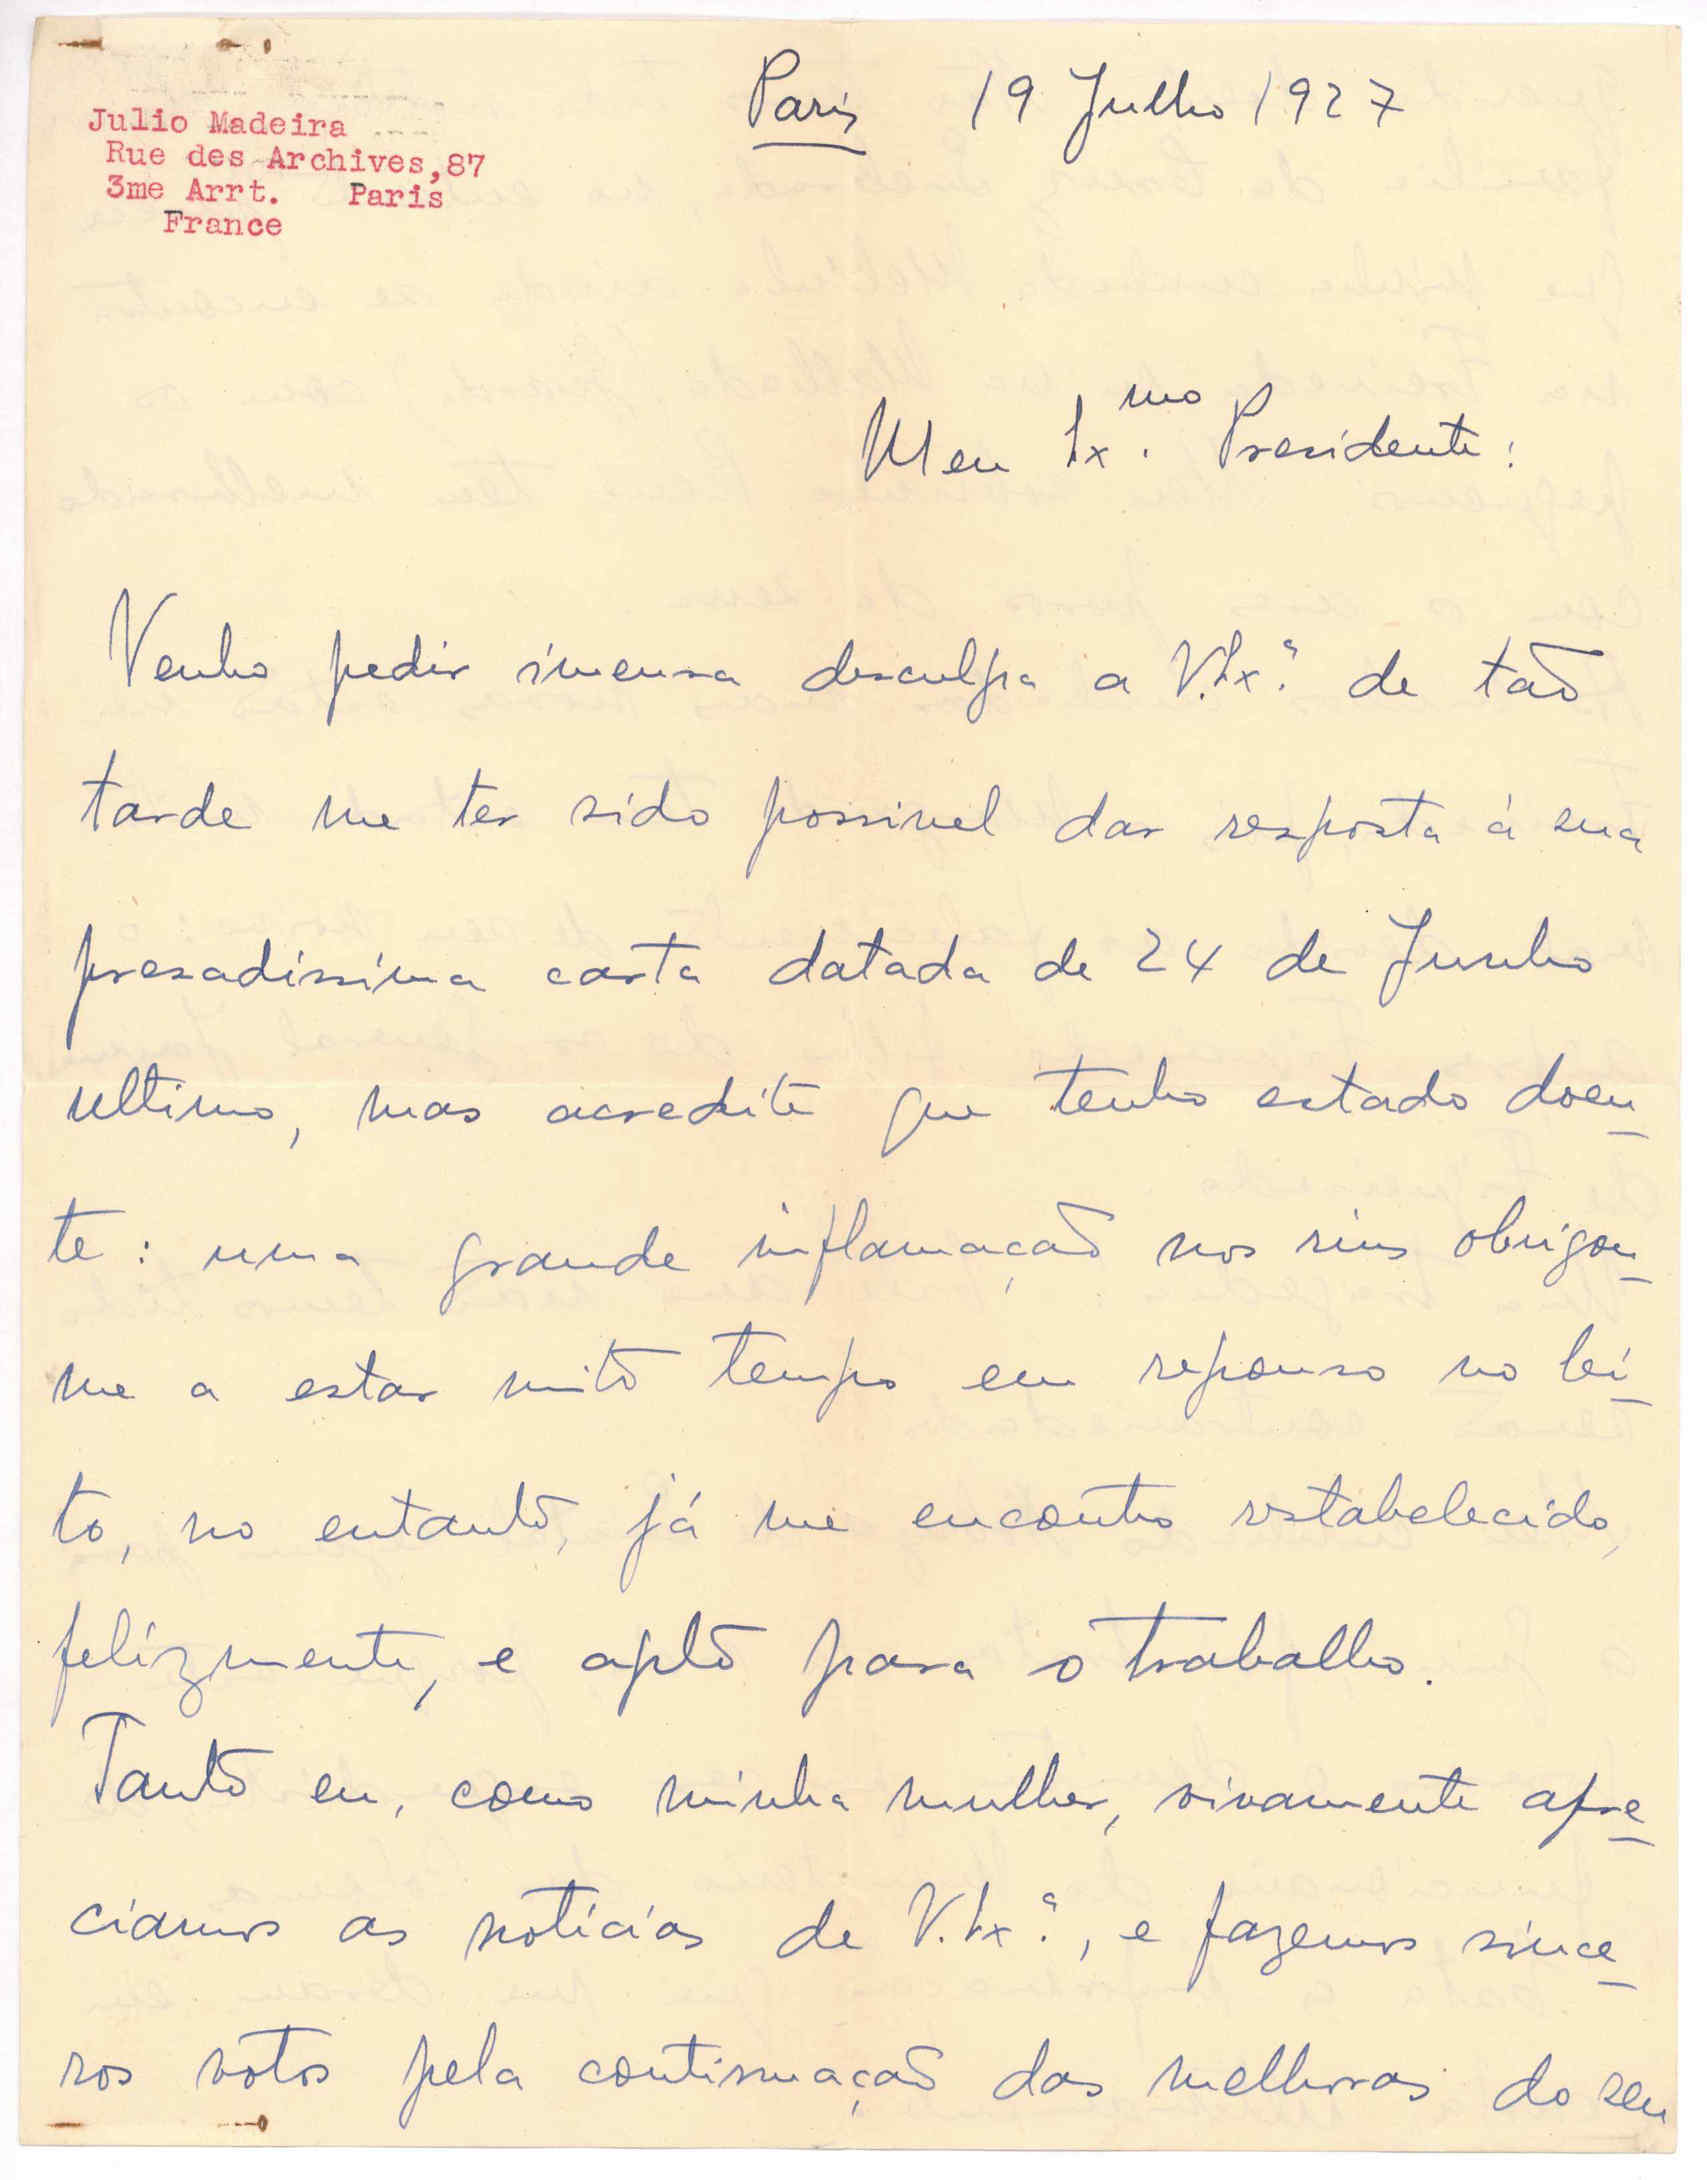 Julio Madeira
Rue des Archives,87
3me Arrt. Paris
France
Paris 19 Julho 1927
Meu Ex.mo Presidente:
Venho pedir imensa desculpa a V.Ex.ª de tão
tarde me ter sido possivel dar resposta á sua
presadissima carta datada de 24 de Junho
ultimo, mas acredite que tenho estado doen-
te: uma grande inflamação nos rins obrigou-
me a estar mito tempo em repouso no lei-
to, no entanto, já me encontro restabelecido,
felizmente, e apto para o trabalho.
Tanto eu, como minha mulher, vivamente apre-
ciamos as noticias de V.Ex.ª, e fazemos since-
ros votos pela continuação das melhoras do seu